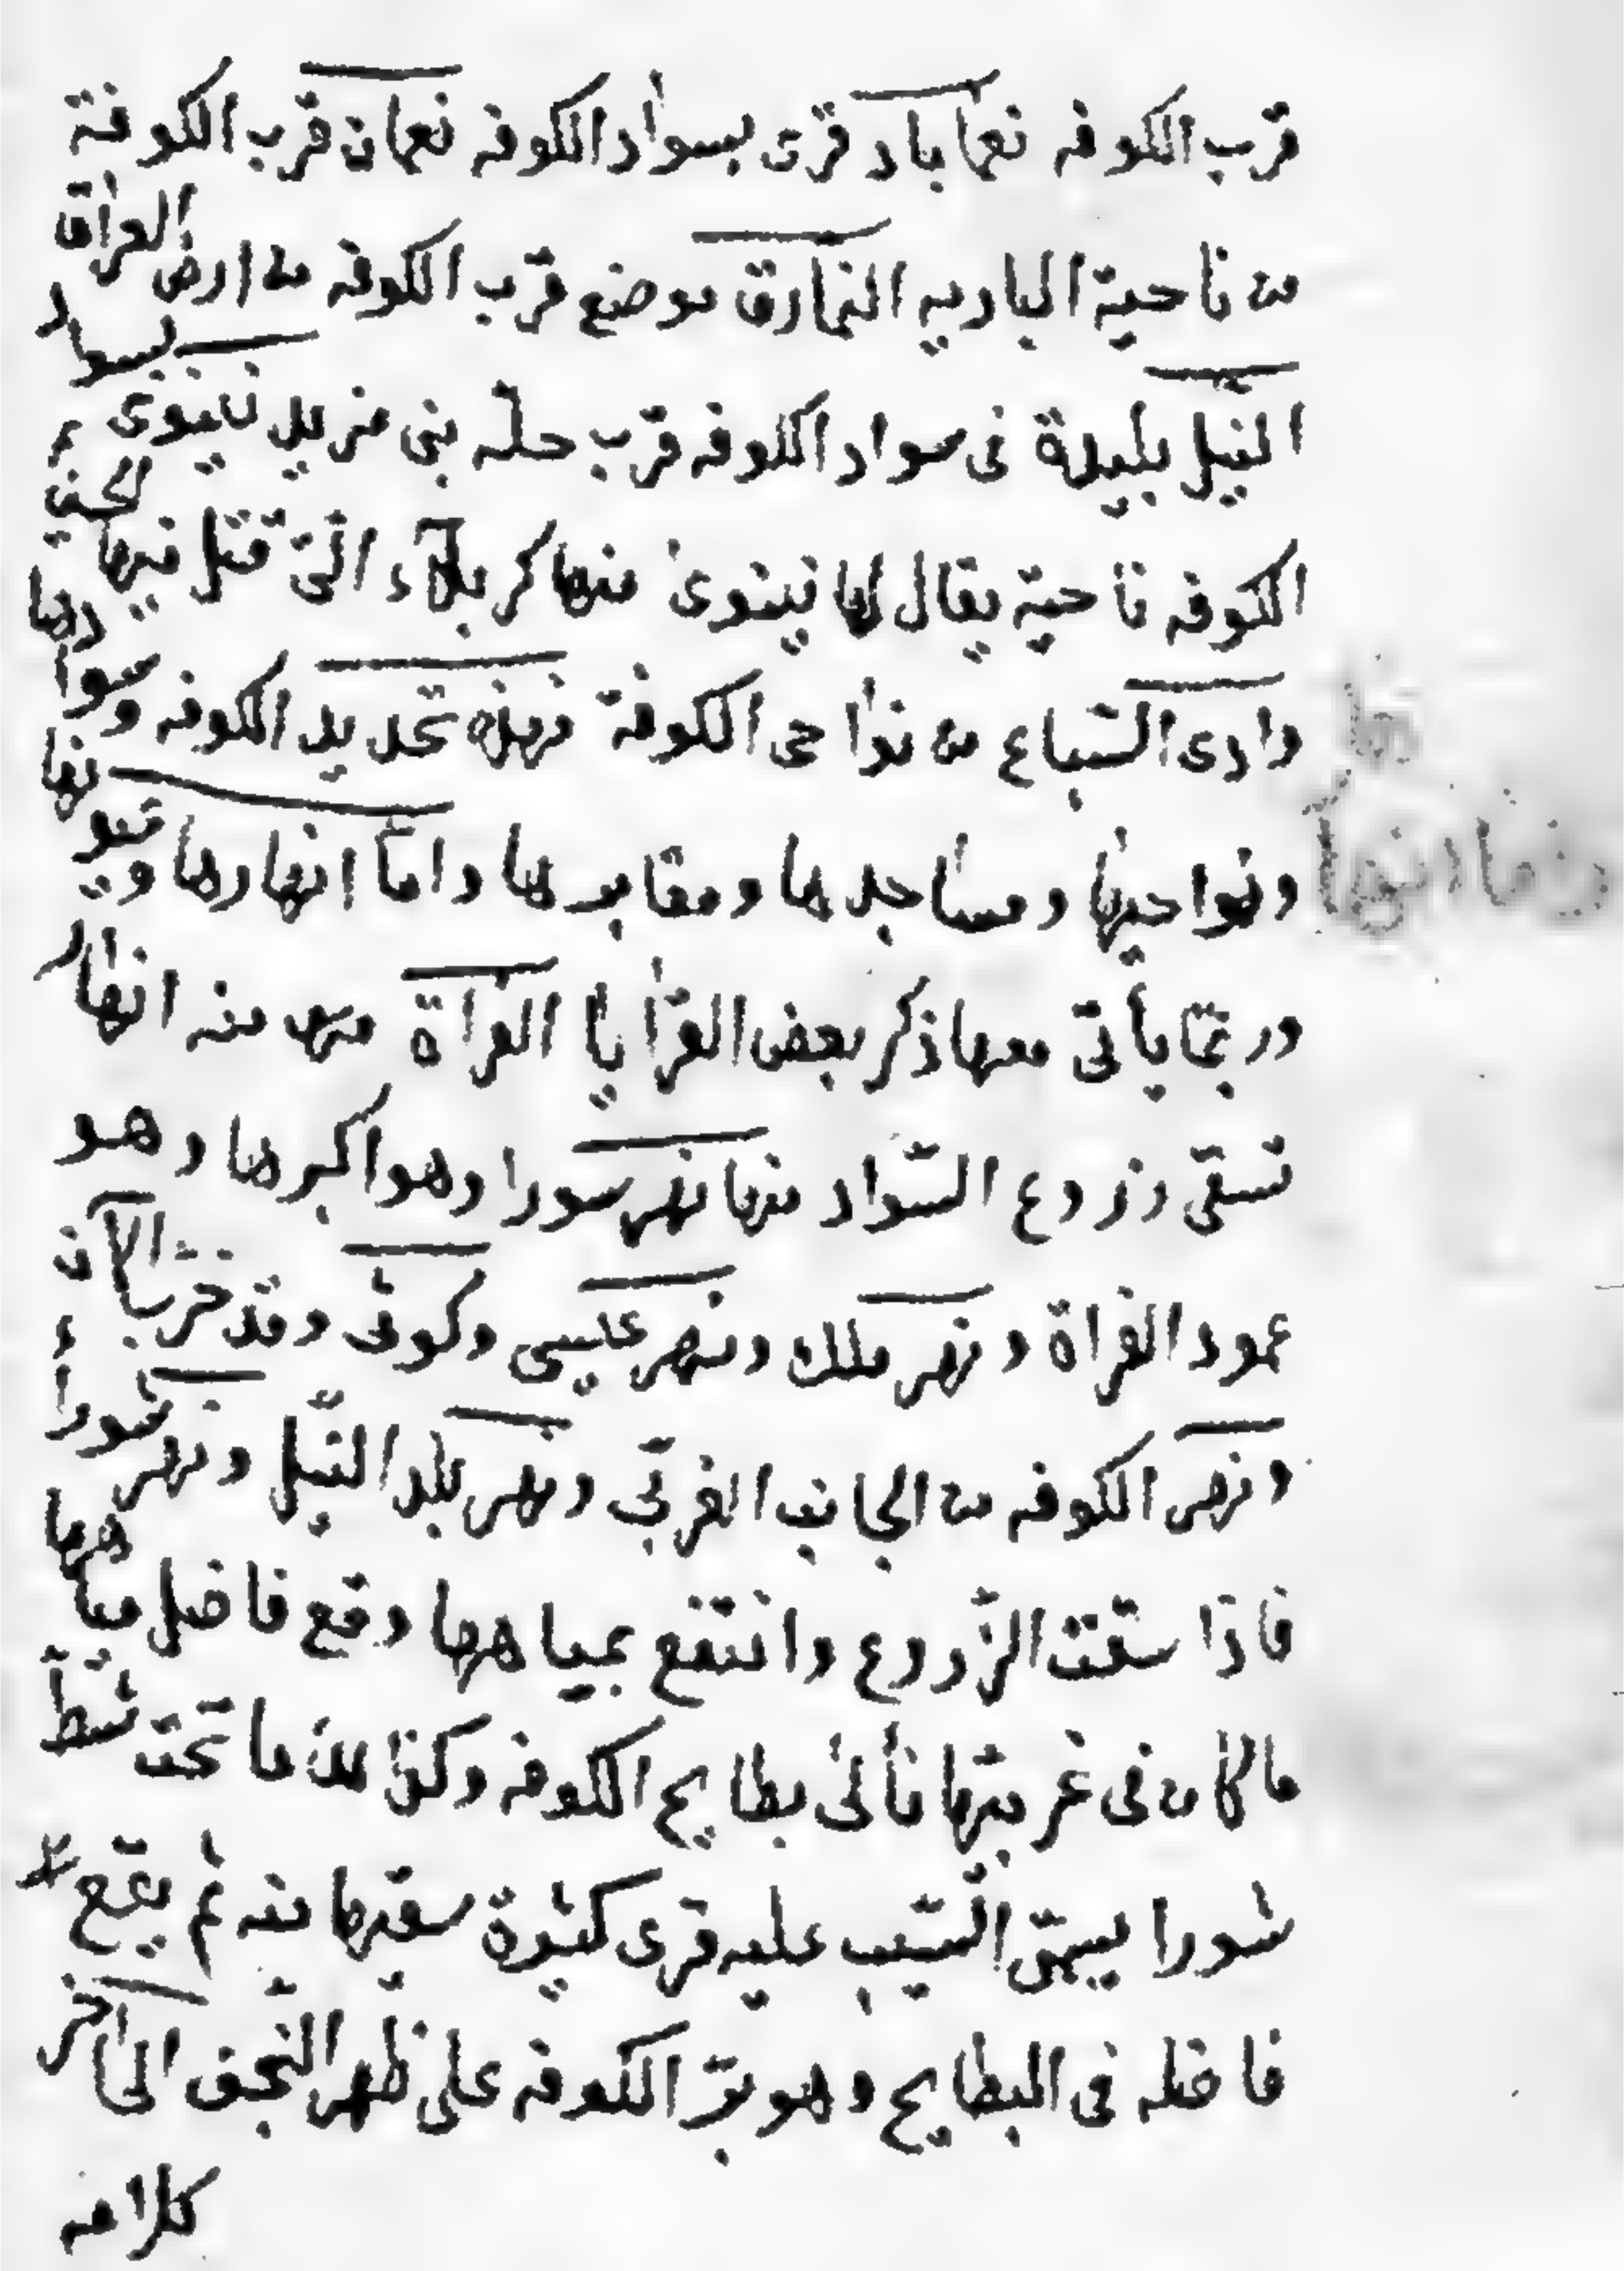 قرب الكوفه نعماباد قرى بسواد الكوفه نعمان قرب الكوفة
من ناحية الباديه النمارق موضع قرب الكوفه من ارض العراق
النيل بليدة فى سواد الكوفه قرب حلة بنى مزيد نينوى بسواد
الكوفه ناحية يقال لها نينوى منها كربلآء الّتى قتل فيها الحسين ؑ
وادى السّباع من نواحى الكوفة فهذه تحديد الكوفه وسوادها
ونواحيها ومساجدها ومقابرها وامّا انهارها وعيونها
وربّما يأتى معها ذكر بعض القرايا الفراة منها منه انهار
تسقى زروع السّواد منها نهر سورا وهو اكبرها وهو
عمود الفراة ونهر ملك ونهر عيسى وكوثى وقد خربت الآن
ونهر الكوفه من الجانب الغربّى ونهر بلد النّيل ونهر شوراء
فاذا سقت الزّروع وانتفع بمياهها وقع فاضل مياهها
ما كان فى غربيّها فألى بطايح الكوفه وكذلك ما تحت شطّ
شورا يسمّى السّيب عليه قرى كثيرة سقيها منه ثم يقع
فاضله فى البطايح وهو برّ الكوفه على ظهر النّجف الى آخر
كلامه